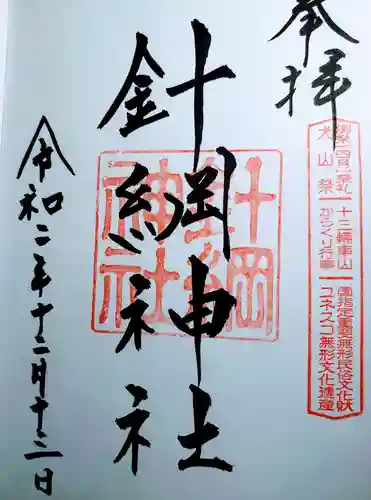 奉拝
犬山祭
十三輛車山
からくり行事
国指定重要無形民俗文化財
ユネスコ無形文化遺産
針綱神社
針綱神社
令和二年十二月十三日